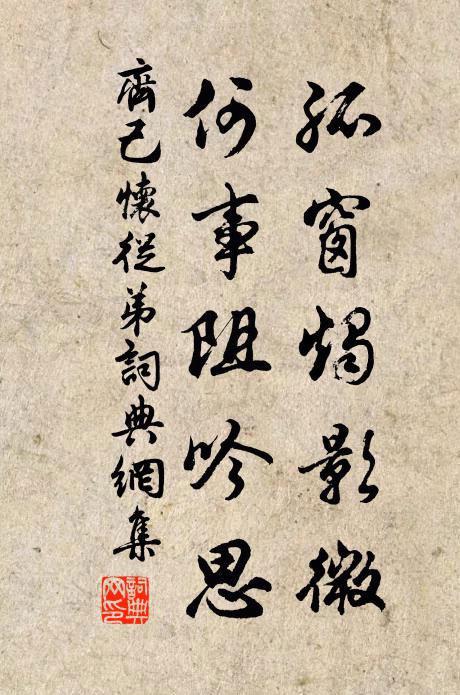 孤窗燭影微
何事阻吟思
齊己懷從弟詞典網集
詞典文印